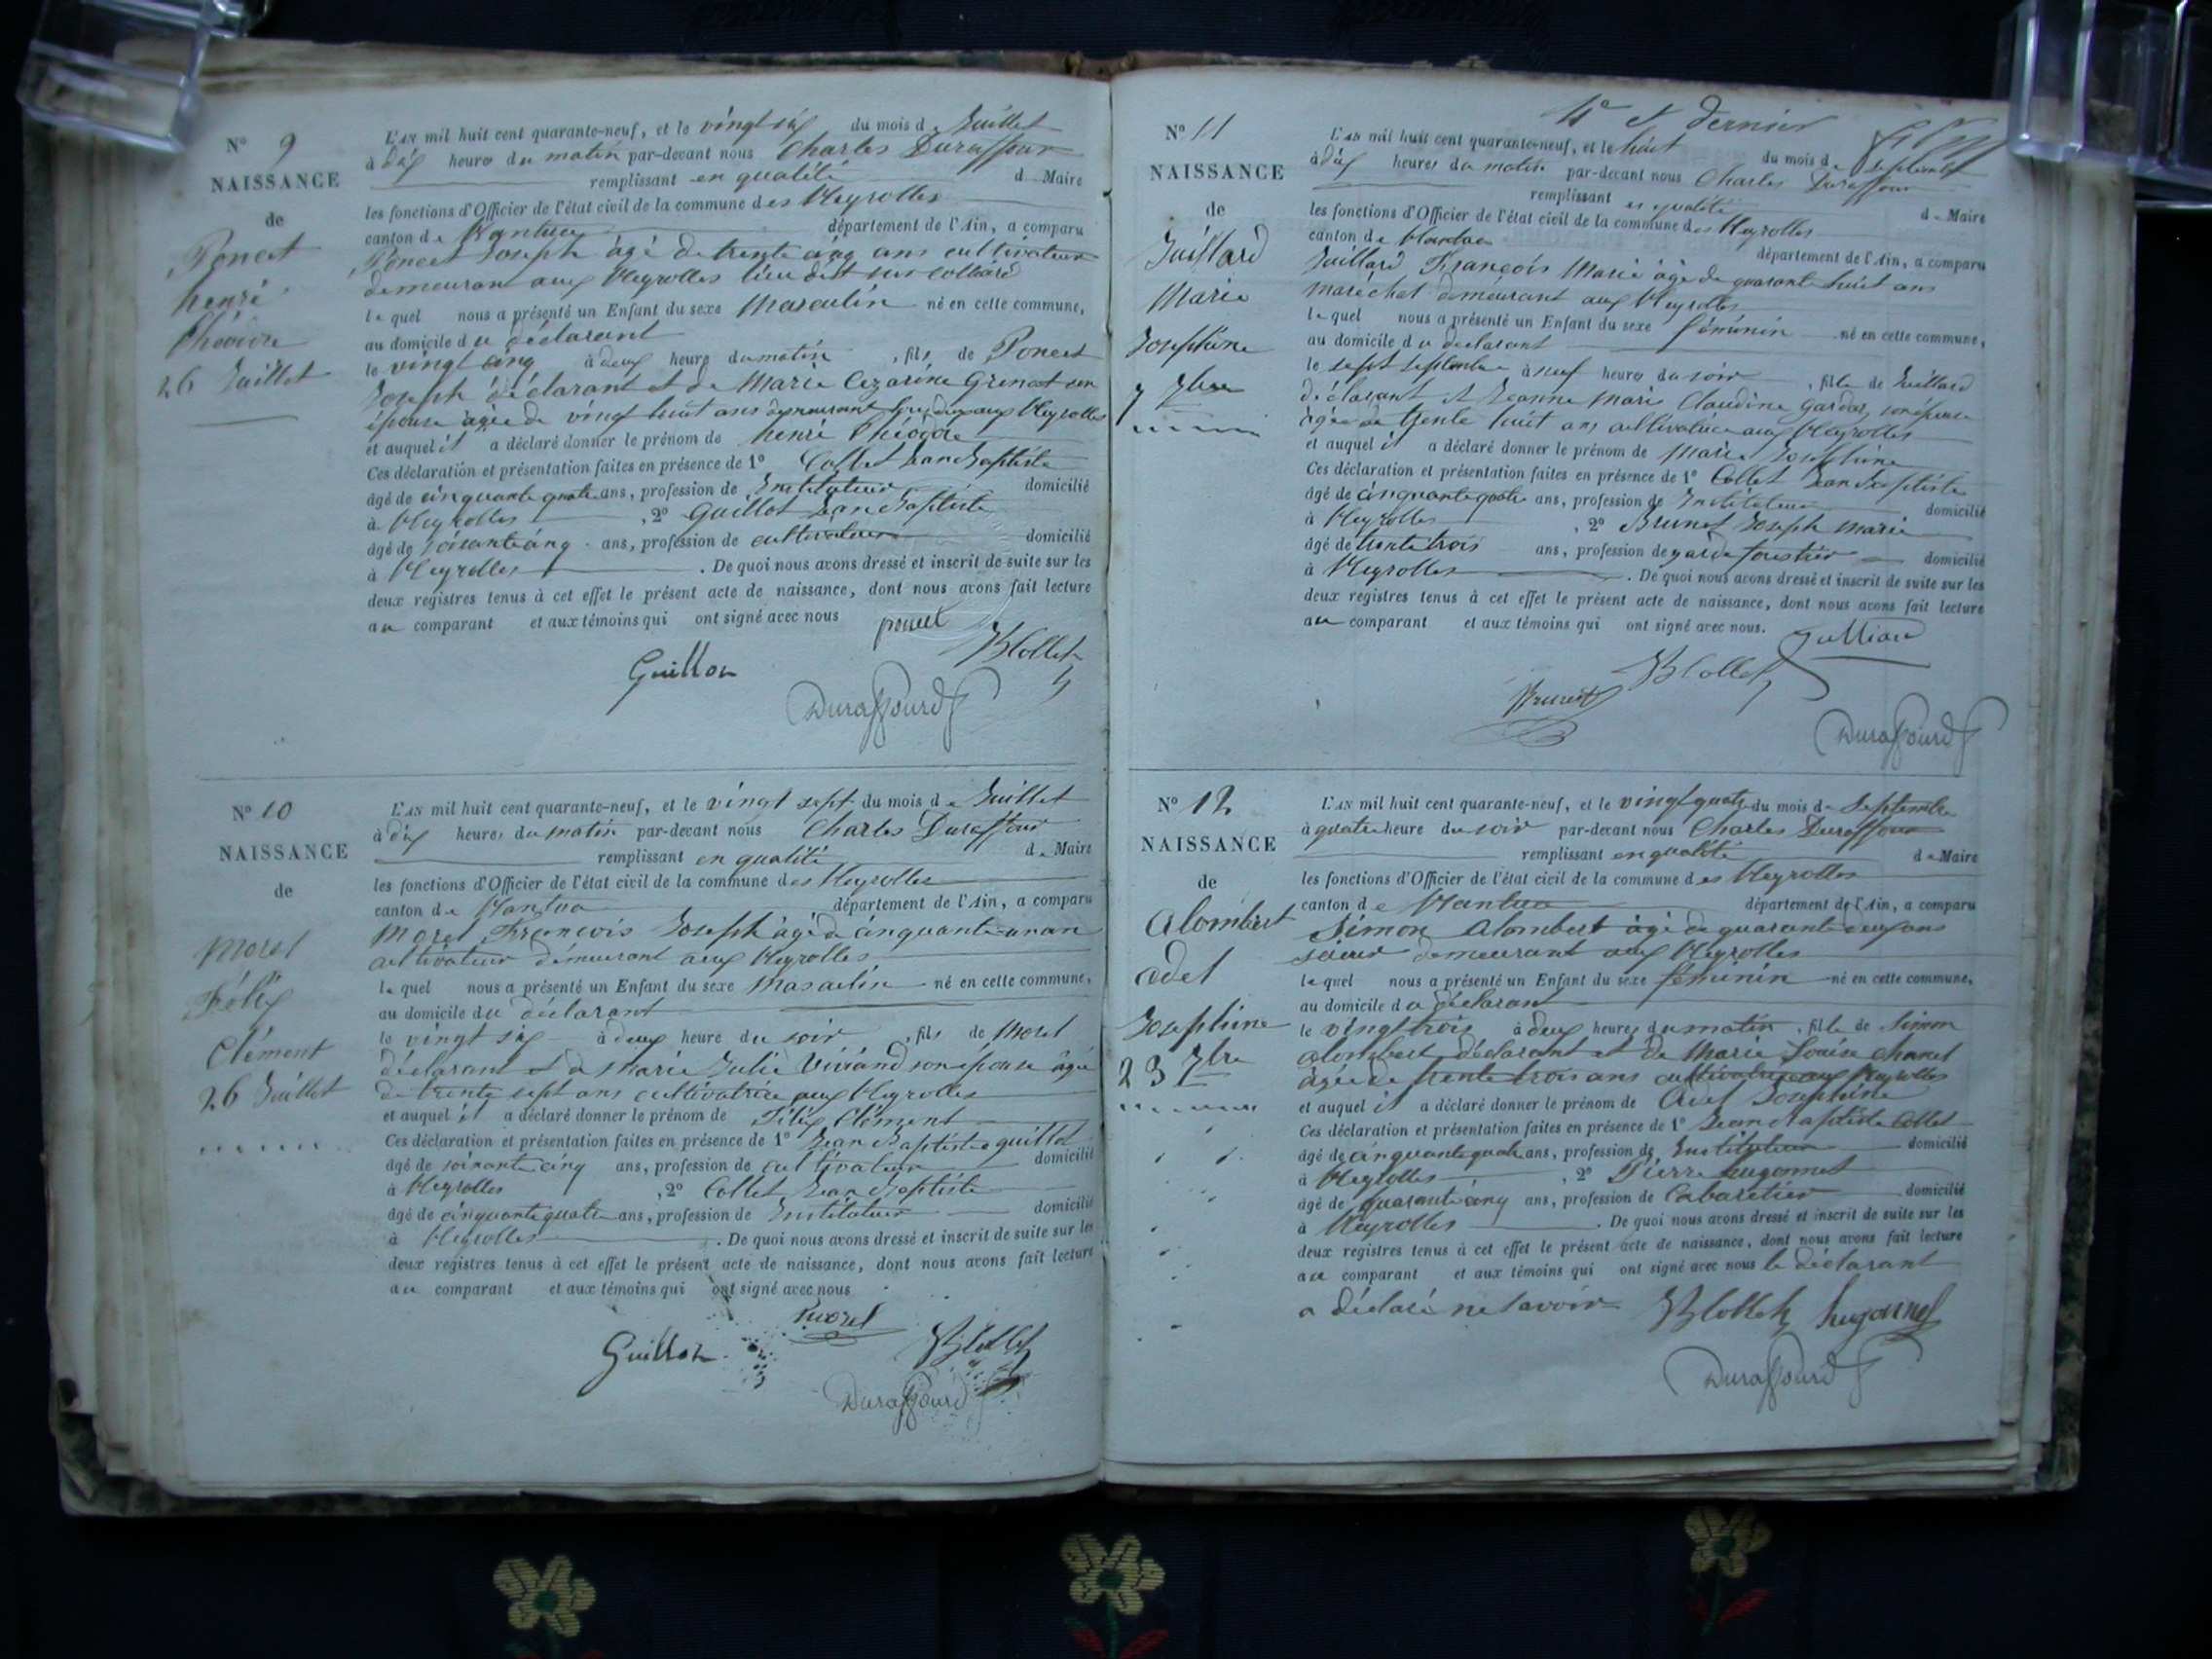 N° 9
NAISSANCE
de
Poncet
henri
Théodore
26 Juillet
L'AN mil huit cent quarante-neuf, et le vingt six du mois de Juillet
à dix heures du matin par-devant nous Charles Duraffour
remplissant en qualité de Maire
les fonctions d'Officier de l'état civil de la commune des Neyrolles
canton de Nantua département de l'Ain, a comparu
Poncet Joseph âgé de trente cinq ans cultivateur
demeurant aux Neyrolles lieu dit sur Colliard
lequel nous a présenté un Enfant du sexe Masculin né en cette commune,
au domicile du déclarant
le vingt cinq à deux heure du matin, fils de Poncet
Joseph déclarant et de Marie Cezarine Grinat son
épouse âgée de vingt huit ans demeurant aux Neyrolles
et auquel il a déclaré donner le prénom de henri Théodore
Ces déclaration et présentation faites en présence de 1° Collet Jean Baptiste
âgé de cinquante quatre ans, profession de Instituteur domicilié
à Neyrolles, 2° Guillot Jean Baptiste
âgé de soixante cinq ans, profession de cultivateur domicilié
à Neyrolles. De quoi nous avons dressé et inscrit de suite sur les
deux registres tenus à cet effet le présent acte de naissance, dont nous avons fait lecture
au comparant et aux témoins qui ont signé avec nous
poncet
JBCollet
Guillot
Duraffourd
N° 10
NAISSANCE
de
Morel
Félix
Clément
26 Juillet
L'AN mil huit cent quarante-neuf, et le vingt sept du mois de Juillet
à dix heures du matin par-devant nous Charles Duraffour
remplissant en qualité de Maire
les fonctions d'Officier de l'état civil de la commune des Neyrolles
canton de Nantua département de l'Ain, a comparu
Morel François Joseph âgé de cinquante un an
cultivateur demeurant aux Neyrolles
lequel nous a présenté un Enfant du sexe Masculin né en cette commune,
au domicile du déclarant
le vingt six à deux heure du soir, fils de Morel
déclarant et de Marie Julie Vivian son épouse âgée
de trente sept ans cultivatrice aux Neyrolles
et auquel il a déclaré donner le prénom de Félix Clément
Ces déclaration et présentation faites en présence de 1° Jean Baptiste guillot
âgé de soixante cinq ans, profession de cultivateur domicilié
à Neyrolles, 2° Collet Jean Baptiste
âgé de cinquante quatre ans, profession de Instituteur domicilié
à Neyrolles. De quoi nous avons dressé et inscrit de suite sur les
deux registres tenus à cet effet le présent acte de naissance, dont nous avons fait lecture
au comparant et aux témoins qui ont signé avec nous
Morel
Guillot
JBCollet
Duraffourd
4e et dernier
N° 11
NAISSANCE
de
Juillard
Marie
Josephine
7 7bre
L'AN mil huit cent quarante-neuf, et le huit du mois de Septembre
à dix heures du matin par-devant nous Charles Duraffour
remplissant en qualité de Maire
les fonctions d'Officier de l'état civil de la commune des Neyrolles
canton de Nantua département de l'Ain, a comparu
Juillard François Marie âgé de quarante huit ans
maréchal demeurant aux Neyrolles
lequel nous a présenté un Enfant du sexe féminin né en cette commune,
au domicile du déclarant
le sept septembre à neuf heures du soir, fille de Juillard
déclarant et Jeanne Marie Claudine Gardaz son épouse
âgée de trente huit ans cultivatrice aux Neyrolles
et auquel il a déclaré donner le prénom de Marie Josephine
Ces déclaration et présentation faites en présence de 1° Collet Jean Baptiste
âgé de cinquante quatre ans, profession de Instituteur domicilié
à Neyrolles, 2° Brunet Joseph Marie
âgé de trente trois ans, profession de garde forestier domicilié
à Neyrolles. De quoi nous avons dressé et inscrit de suite sur les
deux registres tenus à cet effet le présent acte de naissance, dont nous avons fait lecture
au comparant et aux témoins qui ont signé avec nous.
JBCollet
Brunet
Duraffourd
N° 12
NAISSANCE
de
Alombert
adel
Josephine
23 7bre
L'AN mil huit cent quarante-neuf, et le vingt quatre du mois de Septembre
à quatre heure du soir par-devant nous Charles Duraffour
remplissant en qualité de Maire
les fonctions d'Officier de l'état civil de la commune des Neyrolles
canton de Nantua département de l'Ain, a comparu
Simon Alombert âgé de quarante deux ans
demeurant aux Neyrolles
lequel nous a présenté un Enfant du sexe féminin né en cette commune,
au domicile du déclarant
le vingt trois à deux heures du matin, fille de Simon
alombert déclarant et de Marie Louise Chanel
âgée de trente trois ans cultivatrice aux Neyrolles
et auquel il a déclaré donner le prénom de Adel Josephine
Ces déclaration et présentation faites en présence de 1° Jean Baptiste Collet
âgé de cinquante quatre ans, profession de Instituteur domicilié
à Neyrolles, 2° Pierre hugonnet
âgé de quarante cinq ans, profession de Cabaretier domicilié
à Neyrolles. De quoi nous avons dressé et inscrit de suite sur les
deux registres tenus à cet effet le présent acte de naissance, dont nous avons fait lecture
au comparant et aux témoins qui ont signé avec nous le déclarant
a déclaré ne savoir JBCollet hugonnet
Duraffourd